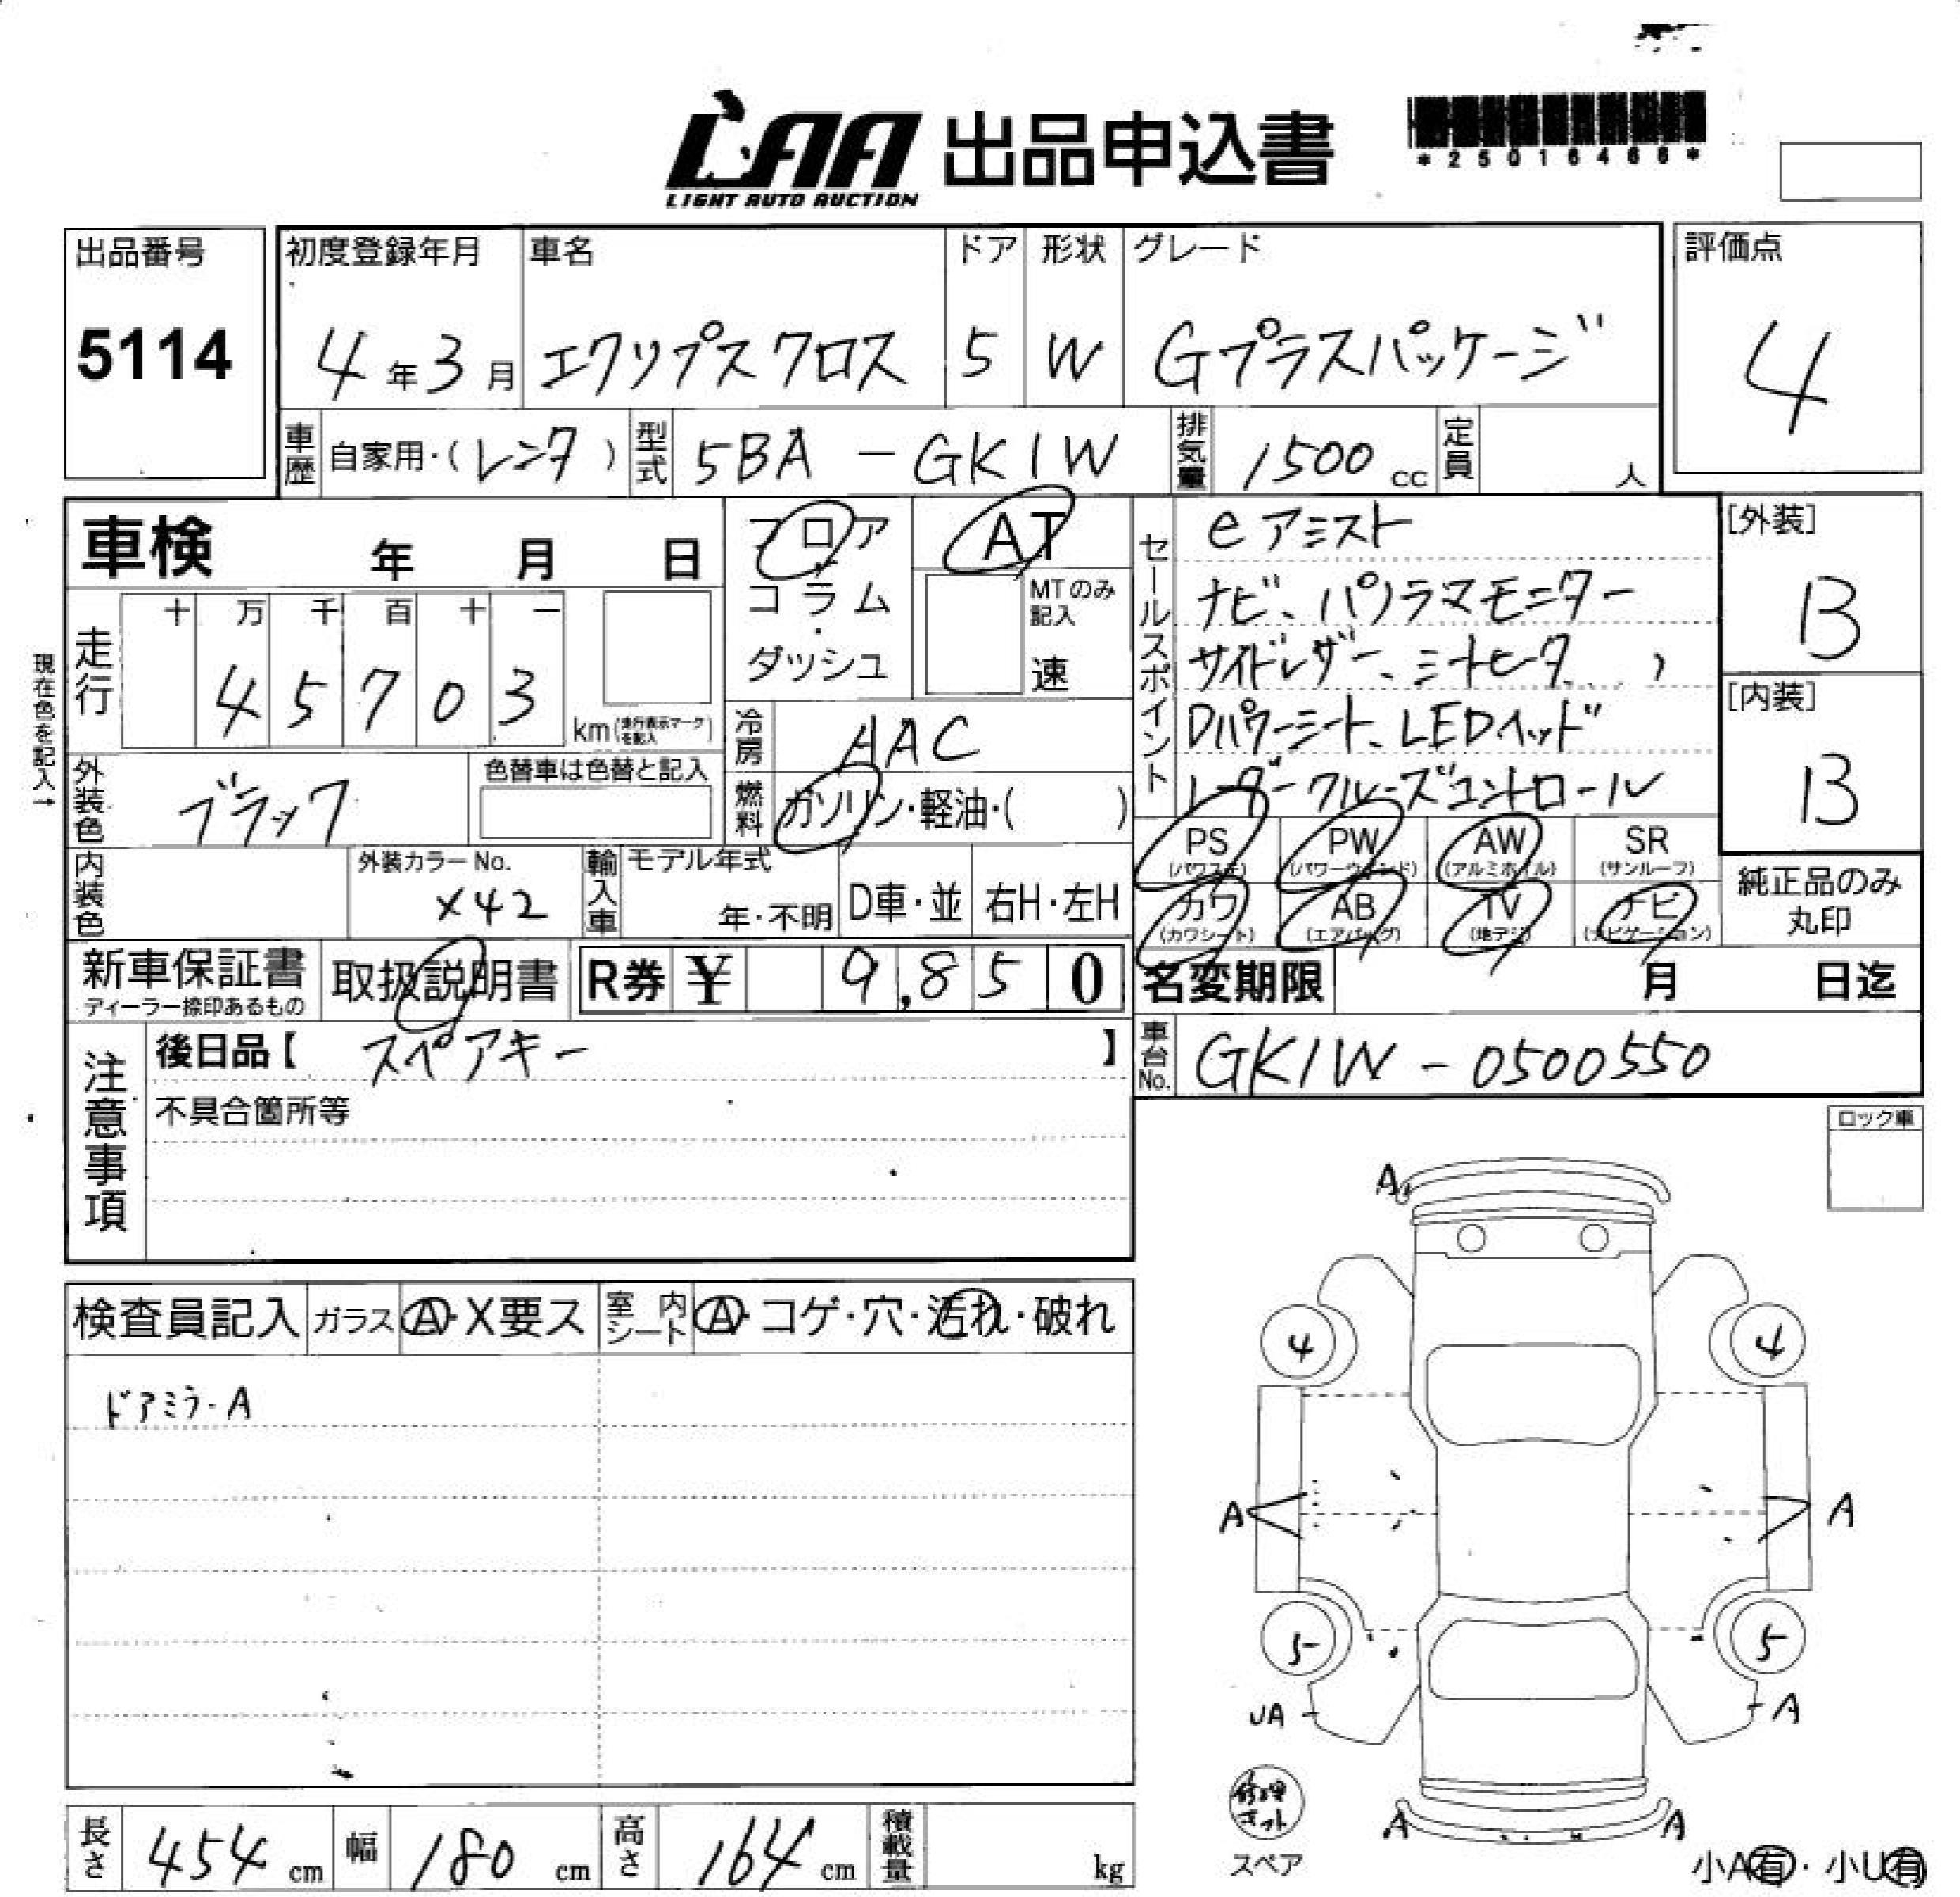 LAA 出品申込書
LIGHT AUTO AUCTION
*25016466*
出品番号
5114
初度登録年月 車名 ドア 形状 グレード
4年3月 エクリプスクロス 5 W Gプラスパッケージ
評価点
4
車歴 自家用・(レンタ) 型式 5BA - GK1W 排気量 1500cc 定員 人
車検 年 月 日
フロア
コラム
・
ダッシュ
AT
MTのみ
記入
速
セールスポイント
eアミスト
ナビ、パノラマモニター
サイドレザー、シートヒータ
Dパワーシート、LEDヘッド
レーダークルーズコントロール
[外装]
B
[内装]
B
現在色を記入→
走行 十 万 千 百 十 一
45703
km(走行表示マークを記入)
冷房 AAC
外装色 ブラック 色替車は色替と記入
燃料 ガソリン・軽油・( )
PS
(パワステ)
PW
(パワーウィンド)
AW
(アルミホイル)
SR
(サンルーフ)
カワ
(カワシート)
AB
(エアバッグ)
TV
(地デジ)
ナビ
(ナビゲーション)
純正品のみ
丸印
内装色 外装カラーNo.
X42
輸入車 モデル年式
年・不明 D車・並 右H・左H
新車保証書
ディーラー捺印あるもの
取扱説明書 R券 ¥ 9,850
名変期限 月 日迄
注意事項
後日品【 スペアキー 】
不具合箇所等
車台No. GK1W - 0500550
ロック車
検査員記入 ガラス A・X要ス 室内シート A・コゲ・穴・汚れ・破れ
ドアミラーA
A
4 4
A A
5 5
UA A
修理キット
スペア
A A
小A有・小U有
長さ 454cm 幅 180cm 高さ 164cm 積載量 kg